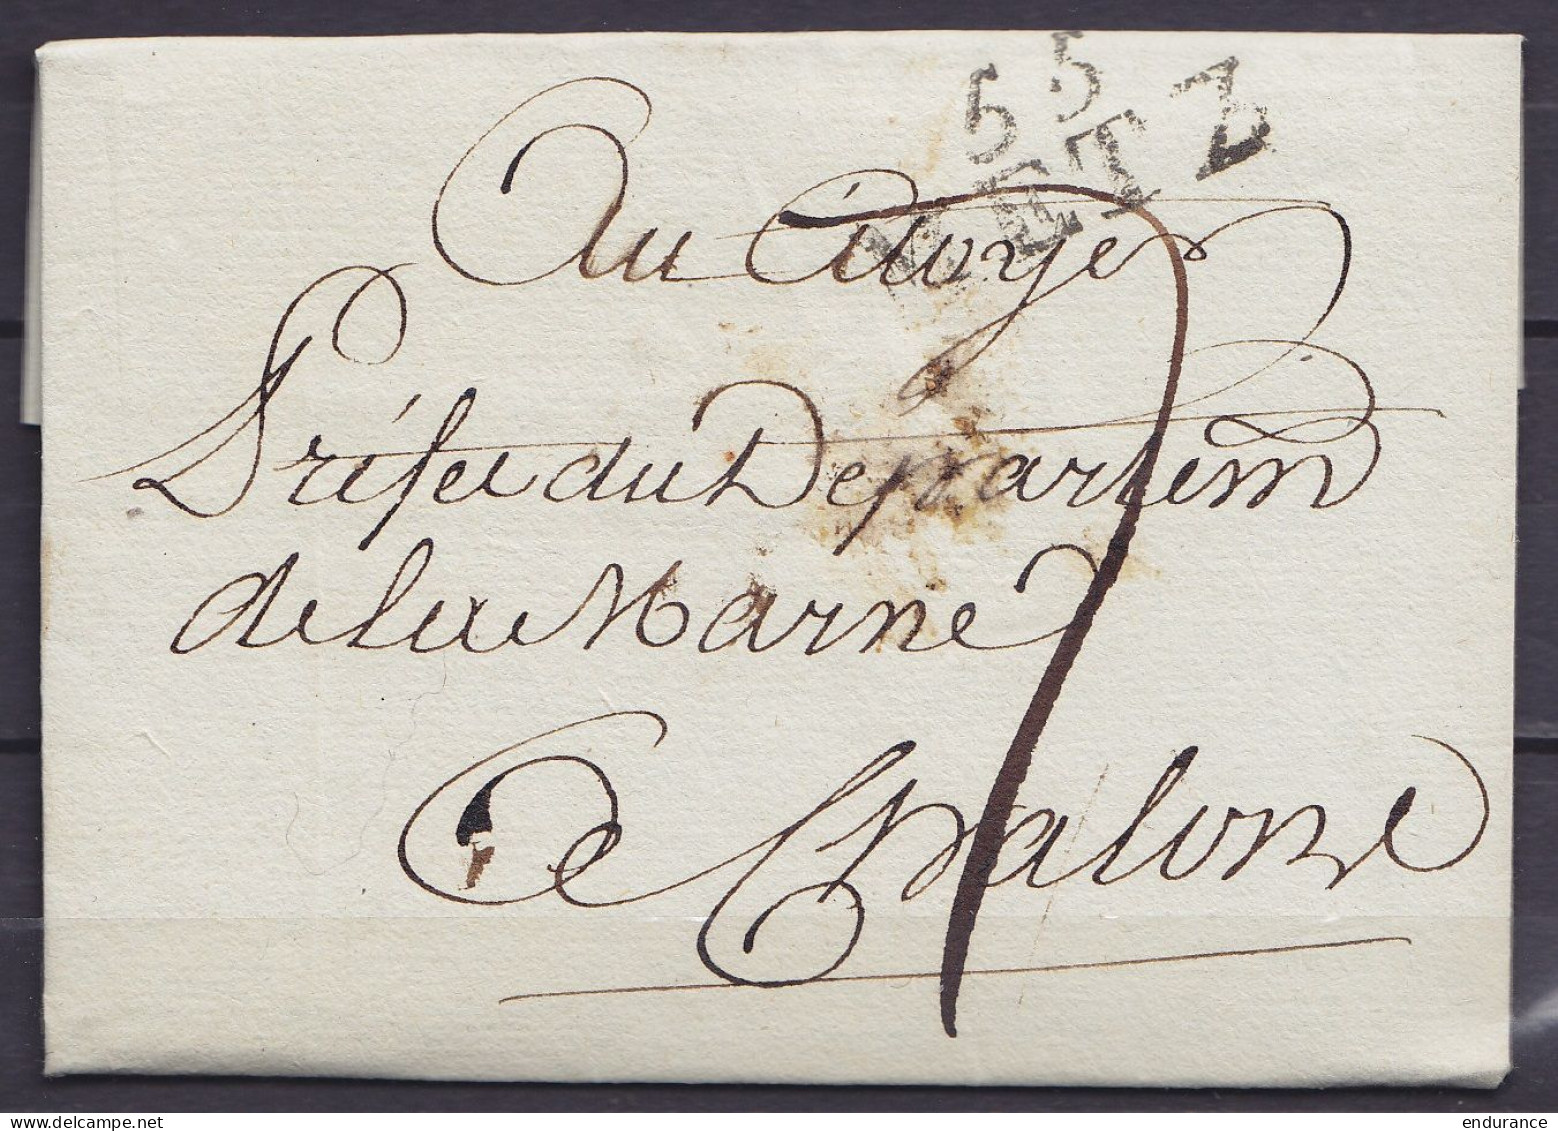 55
METZ
Au Citoyen
Préfet du Departem
de la Marne
a Chalons
7
endurance